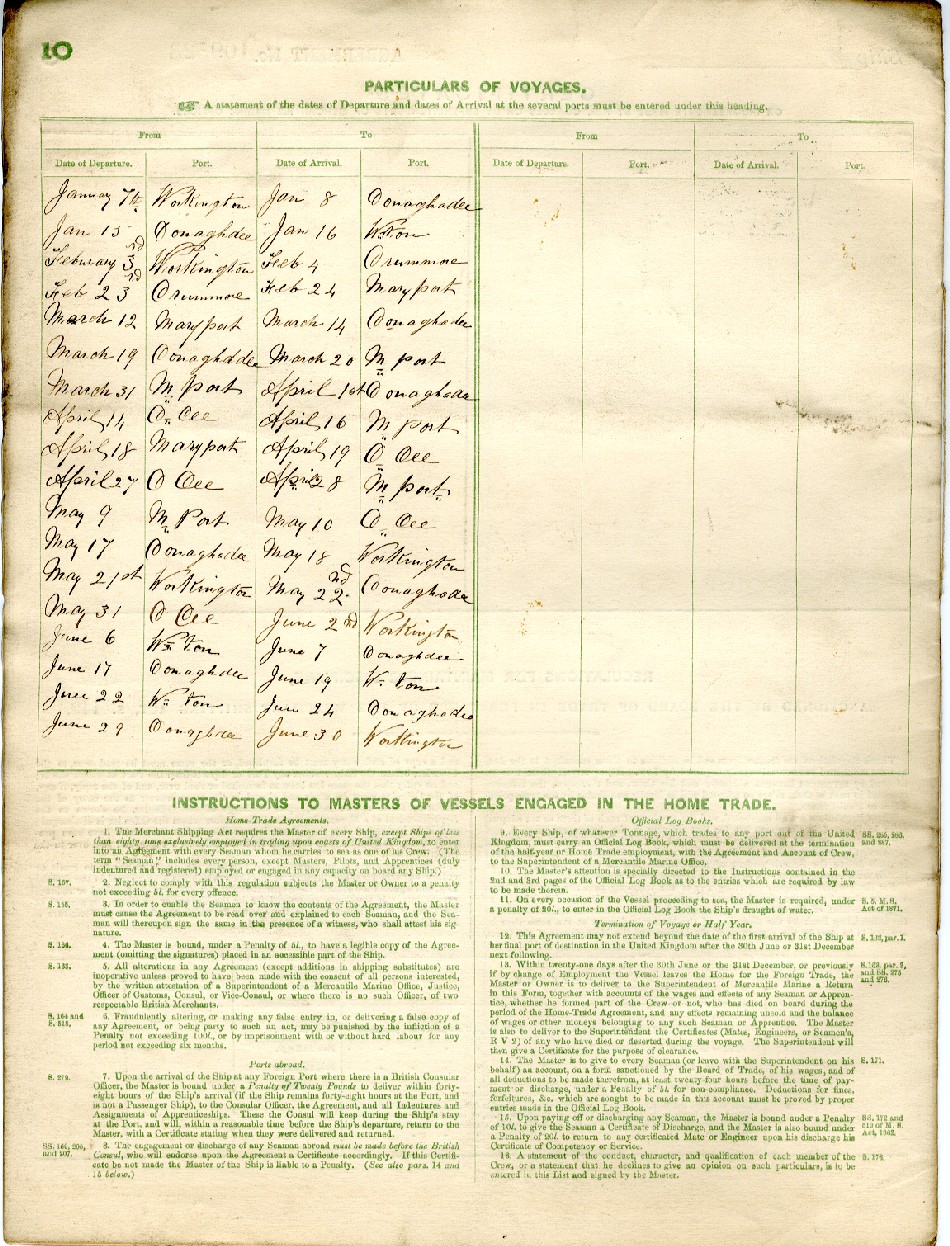 10
PARTICULARS OF VOYAGES.
A statement of the dates of Departure and dates of Arrival at the several ports must be entered under this heading.
From To From To
Date of Departure. Port. Date of Arrival. Port. Date of Departure. Port. Date of Arrival. Port.
January 7th Workington Jan 8 Donaghadee
Jan 15 Donaghdee Jan 16 W.ton
February 3rd Workington Feb 4 Drummore
Feb 23rd Drummore Feb 24 Maryport
March 12 Maryport March 14 Donaghadee
March 19 Donaghddee March 20 M port
March 31 M port April 1st Donaghadee
April 14 D Dee April 16 M port
April 18 Maryport April 19 D Dee
April 27 D Dee April 28 M port
May 9 M Port May 10 D Dee
May 17 Donaghadee May 18 Workington
May 21st Workington May 22nd Donaghadee
May 31 D Dee June 2nd Workington
June 6 W ton June 7 Donaghdee
June 17 Donaghdee June 19 W ton
June 22 W ton June 24 Donaghadee
June 29 June 30 Workington
INSTRUCTIONS TO MASTERS OF VESSELS ENGAGED IN THE HOME TRADE.
Home Trade Agreements.
1. The Merchant Shipping Act requires the Master of every Ship, except Ships of less
than eighty tons exclusively employed in trading upon coasts of United Kingdom, to enter
into an Agreement with every Seaman whom he carries to sea as one of his Crew. (The
term "Seaman," includes every person, except Masters, Pilots, and Apprentices (duly
indentured and registered) employed or engaged in any capacity on board any Ship.)
S. 157. 2. Neglect to comply with this regulation subjects the Master or Owner to a penalty
not exceeding 5l. for every offence.
S. 115. 3. In order to enable the Seaman to know the contents of the Agreement, the Master
must cause the Agreement to be read over and explained to each Seaman, and the Sea-
man will thereupon sign the same in the presence of a witness, who shall attest his sig-
nature.
S. 120. 4. The Master is bound, under a Penalty of 5l., to have a legible copy of the Agree-
ment (omitting the signatures) placed in an accessible part of the Ship.
S. 122. 5. All alterations in any Agreement (except additions in shipping substitutes) are
inoperative unless proved to have been made with the consent of all persons interested,
by the written attestation of a Superintendent of a Mercantile Marine Office, Justice,
Officer of Customs, Consul, or Vice-Consul, or where there is no such Officer, of two
respectable British Merchants.
6. Fraudulently altering, or making any false entry in, or delivering a false copy of
any Agreement, or being party to such an act, may be punished by the infliction of a
Penalty not exceeding 100l., or by imprisonment with or without hard labour for any
period not exceeding six months.
Ports abroad.
S. 279. 7. Upon the arrival of the Ship at any Foreign Port where there is a British Consular
Officer, the Master is bound under a Penalty of Twenty Pounds to deliver within forty-
eight hours of the Ship's arrival (if the Ship remains forty-eight hours at the Port, and
is not a Passenger Ship), to the Consular Officer, the Agreement, and all Indentures and
Assignments of Apprenticeships. These the Consul will keep during the Ship's stay
at the Port, and will, within a reasonable time before the Ship's departure, return to the
Master, with a Certificate stating when they were delivered and returned.
8. The engagement or discharge of any Seaman abroad must be made before the British
Consul, who will endorse upon the Agreement a Certificate accordingly. If this Certifi-
cate be not made the Master of the Ship is liable to a Penalty. (See also pars. 14 and
15 below.)
Official Log Books.
9. Every Ship, of whatever Tonnage, which trades to any port out of the United
Kingdom, must carry an Official Log Book, which must be delivered at the termination
of the half-year or Home Trade employment, with the Agreement and Account of Crew,
to the Superintendent of a Mercantile Marine Office.
10. The Master's attention is specially directed to the Instructions contained in the
2nd and 3rd pages of the Official Log Book as to the entries which are required by law
to be made therein.
11. On every occasion of the Vessel proceeding to sea, the Master is required, under S. 5, M. S.
a penalty of 20l., to enter in the Official Log Book the Ship's draught of water. Act of 1871.
Termination of Voyage or Half Year.
12. This Agreement may not extend beyond the date of the first arrival of the Ship at
her final port of destination in the United Kingdom after the 30th June or 31st December
next following.
13. Within twenty-one days after the 30th June or the 31st December, or previously
if by change of Employment the Vessel leaves the Home for the Foreign Trade, the
Master or Owner is to deliver to the Superintendent of Mercantile Marine a Return
in this Form, together with accounts of the wages and effects of any Seaman or Appren-
tice, whether he formed part of the Crew or not, who has died on board during the
period of the Home-Trade Agreement, and any effects remaining unsold and the balance
of wages or other moneys belonging to any such Seaman or Apprentice. The Master
is also to deliver to the Superintendent the Certificates (Mates, Engineers, or Seaman's,
R V 2) of any who have died or deserted during the voyage. The Superintendent will
then give a Certificate for the purpose of clearance.
14. The Master is to give to every Seaman (or leave with the Superintendent on his S. 171.
behalf) an account, on a form sanctioned by the Board of Trade, of his wages, and of
all deductions to be made therefrom, at least twenty-four hours before the time of pay-
ment or discharge, under a Penalty of 5l. for non-compliance. Deductions for fines,
forfeitures, &c. which are sought to be made in this account must be proved by proper
entries made in the Official Log Book.
15. Upon paying off or discharging any Seaman, the Master is bound under a Penalty
of 10l. to give the Seaman a Certificate of Discharge, and the Master is also bound under
a Penalty of 20l. to return to any certificated Mate or Engineer upon his discharge his
Certificate of Competency or Service.
16. A statement of the conduct, character, and qualification of each member of the
Crew, or a statement that he declines to give an opinion on such particulars, is to be
entered in this List and signed by the Master.